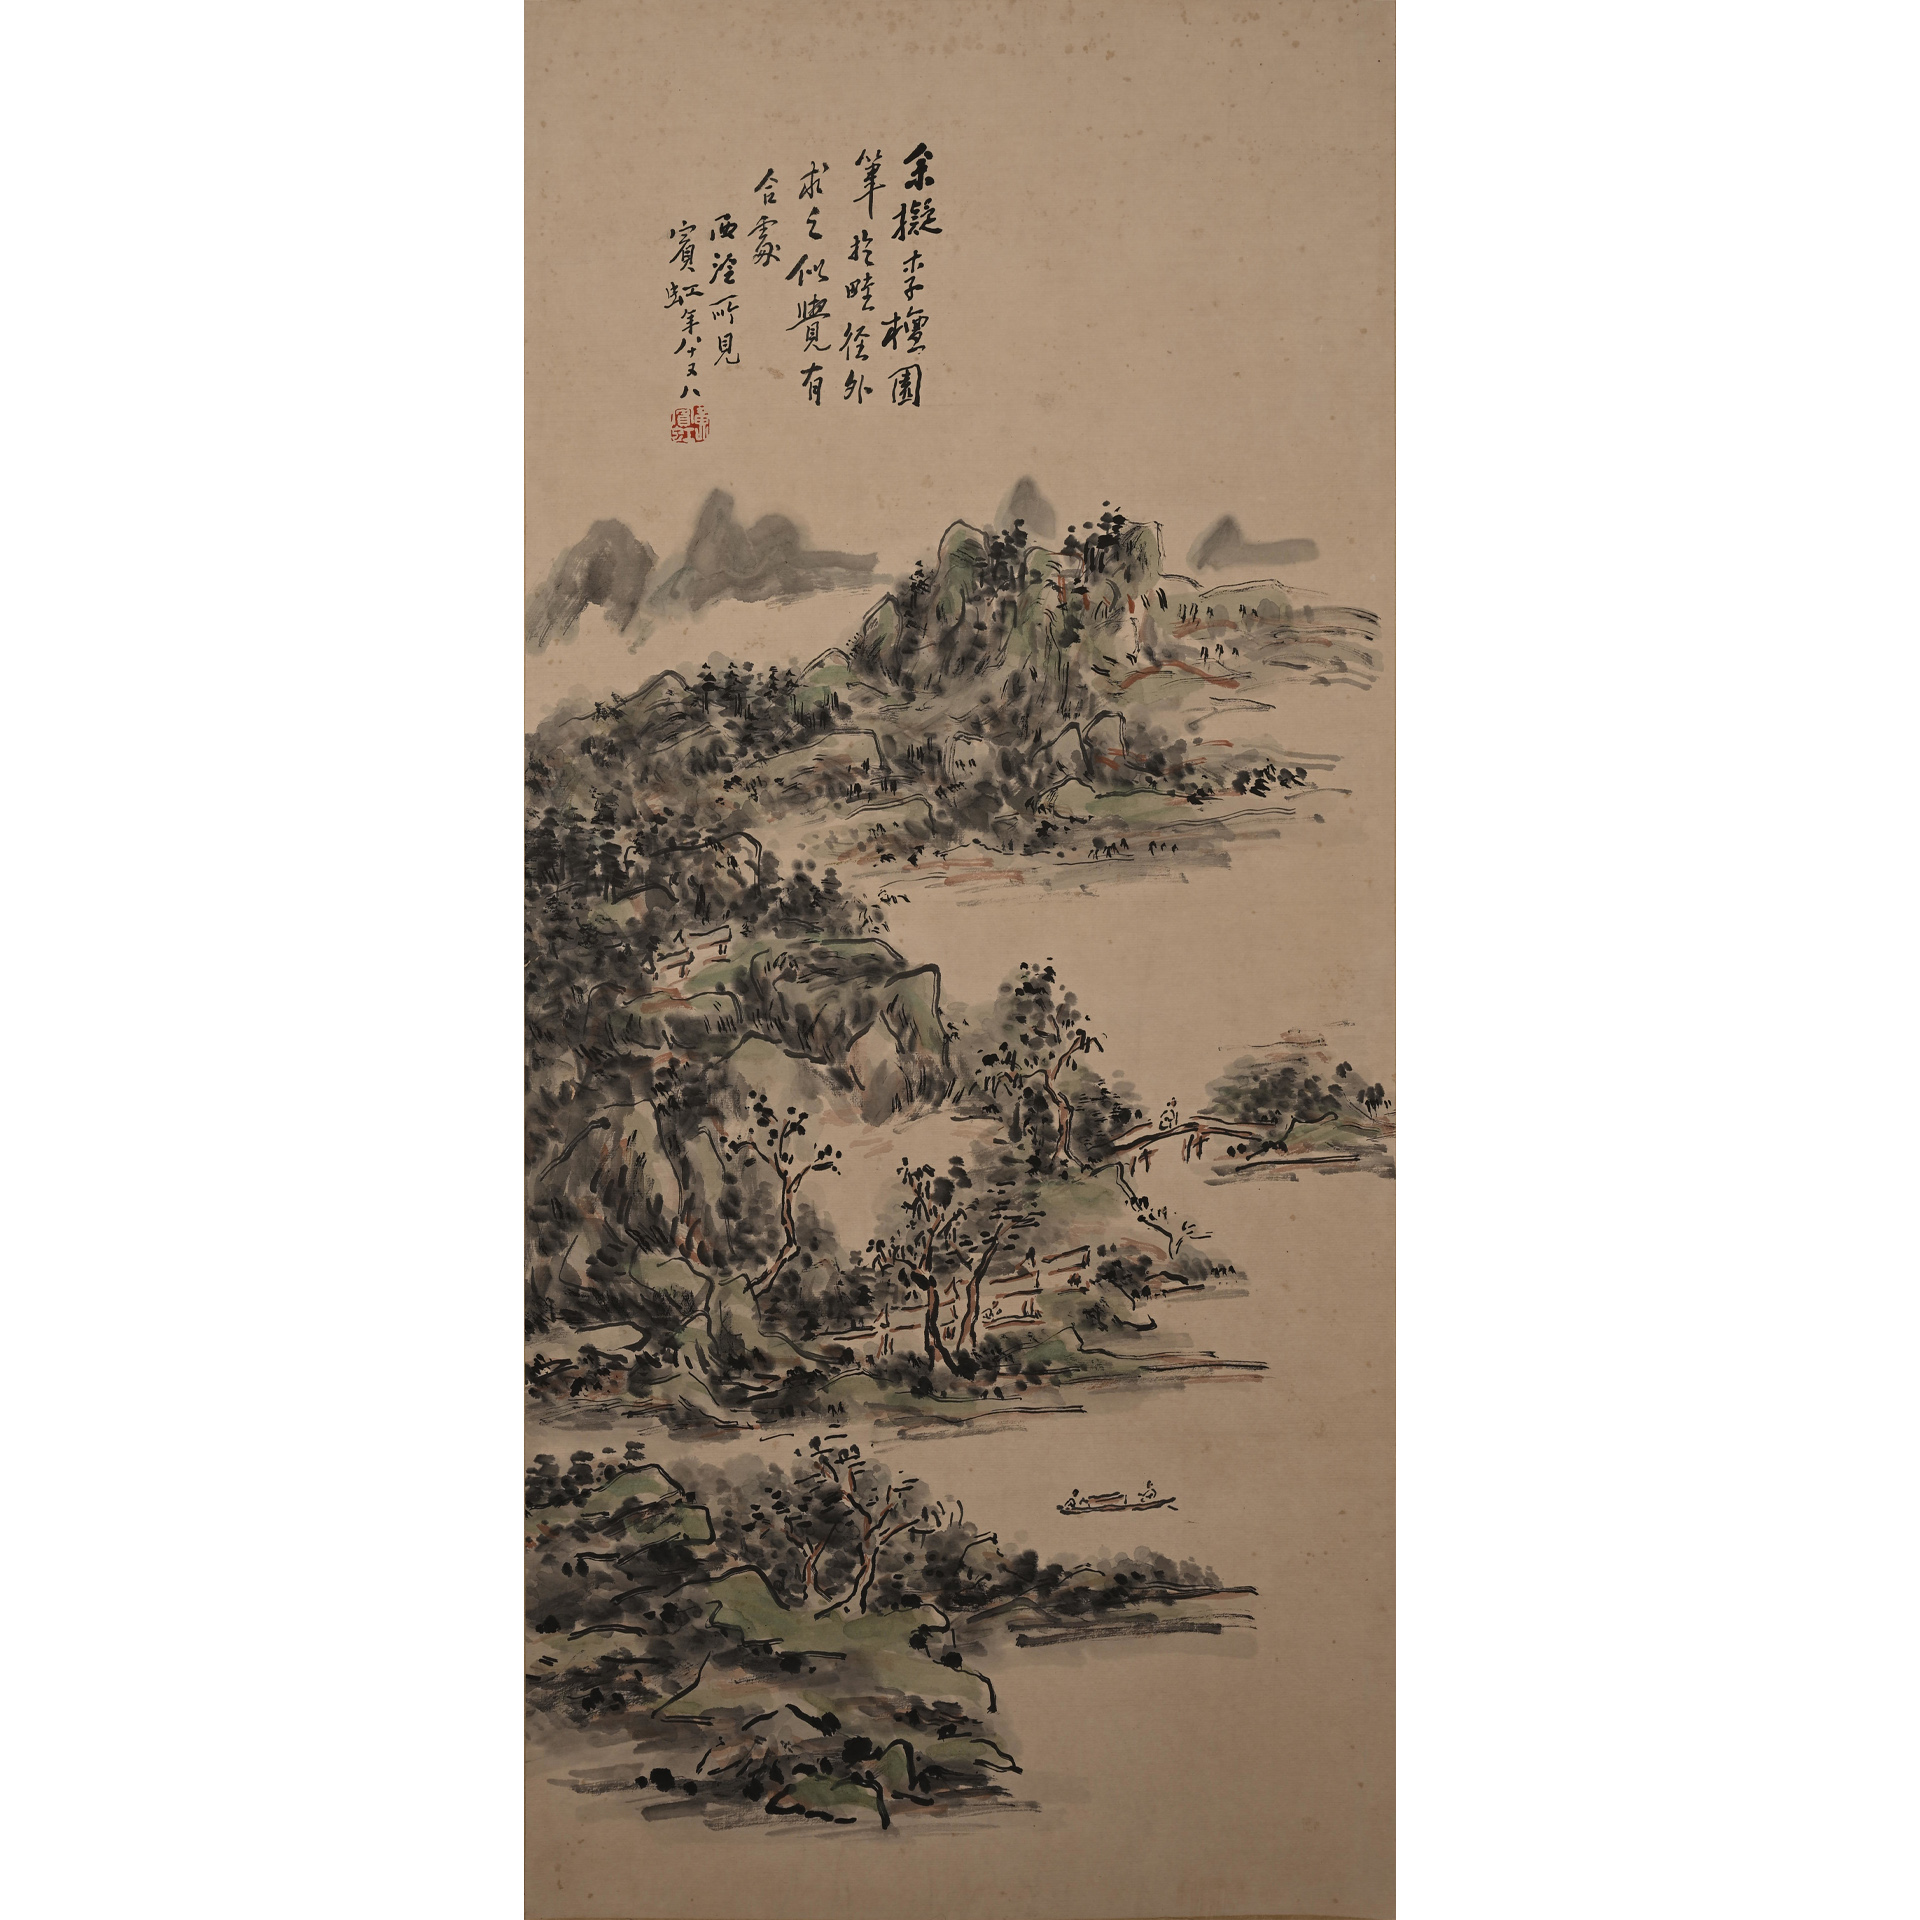 余擬李檀園
筆於畦径外
求之似覺有
合處
西泠所見
賓虹年八十又八
黄賓虹